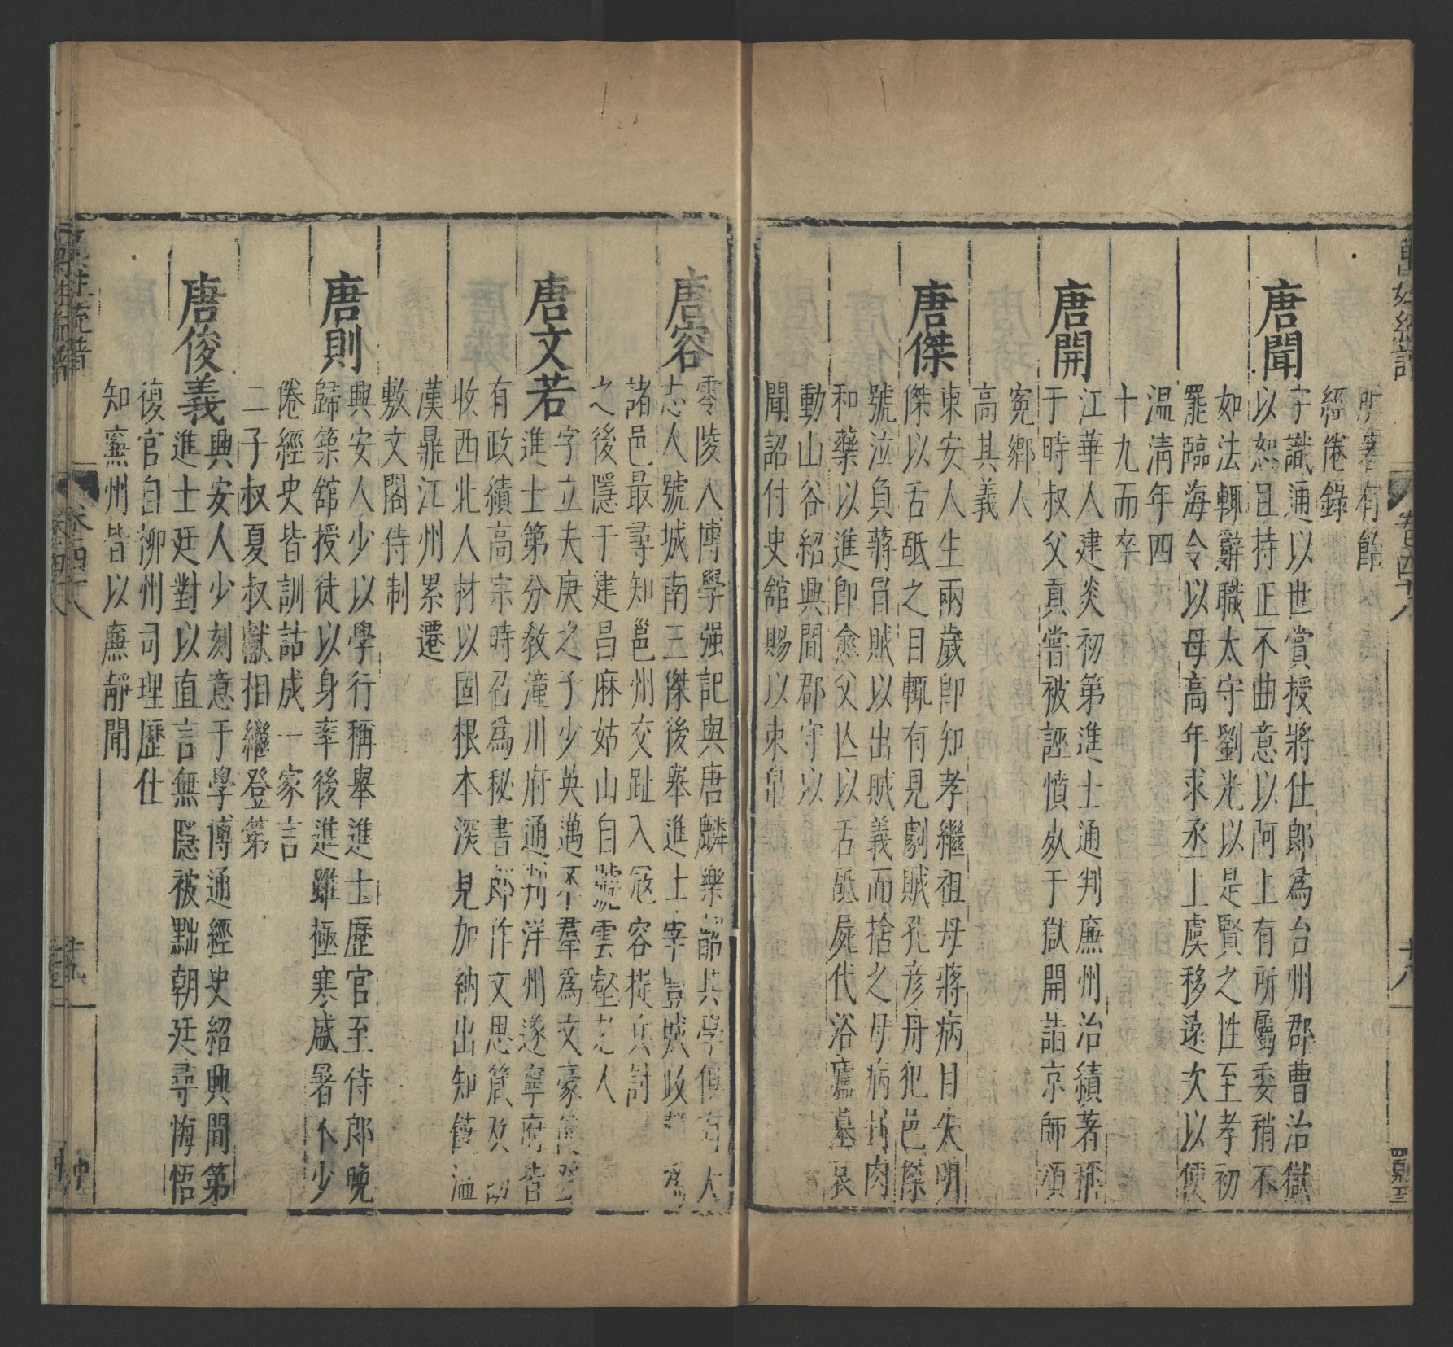 所著有餘
經倦錄
唐聞
字識通以世賞授將仕郎為台州郡曹治獄
以恕且持正不曲意以阿上有所屬委稍不
如法輒辭職太守劉光以是賢之性至孝初
罷臨海令以母高年求丞上虞移遠次以便
溫凊年四
十九而卒
唐開
江華人建炎初第進士通判廉州治績著稱
于時叔父真嘗被誣憤死于獄開詣京師頌
冤鄉人
高其義
唐傑
東安人生兩歲即知孝繼祖母蔣病目失明
傑以舌舐之目輒有見劇賊孔彥舟犯邑傑
號泣負蔣冒賊以出賊義而捨之母病刲肉
和藥以進即愈父亾以舌舐屍代浴廬墓哀
動山谷紹興間郡守以
聞詔付史館賜以束帛
唐容
零陵人博學强記與唐麟樂韶共學俱有大
志人號城南三傑後舉進士宰宜城政
諸邑最尋知邕州交趾入寇容提兵討
之後隱于建昌麻姑山自號雲壑老人
唐文若
字立夫庚之子少英邁不羣為文豪健登
進士第分教潼川府通判洋州遂寧府皆
有政績高宗時召為秘書郎作文思箴及
收西北人材以固根本深見加納出知饒溫
漢鼎江州累遷
敷文閣侍制
唐則
興安人少以學行稱舉進士歷官至待郎晚
歸築館授徒以身率後進雖極寒咸暑不少
倦經史皆訓詁成一家言
二子叔夏叔獻相繼登第
唐俊義
興安人少刻意于學博通經史紹興間第
進士廷對以直言無隱被黜朝廷尋悔悟
復官自柳州司理歷仕
知㢘州皆以㢘靜聞
萬姓統譜
卷四十八